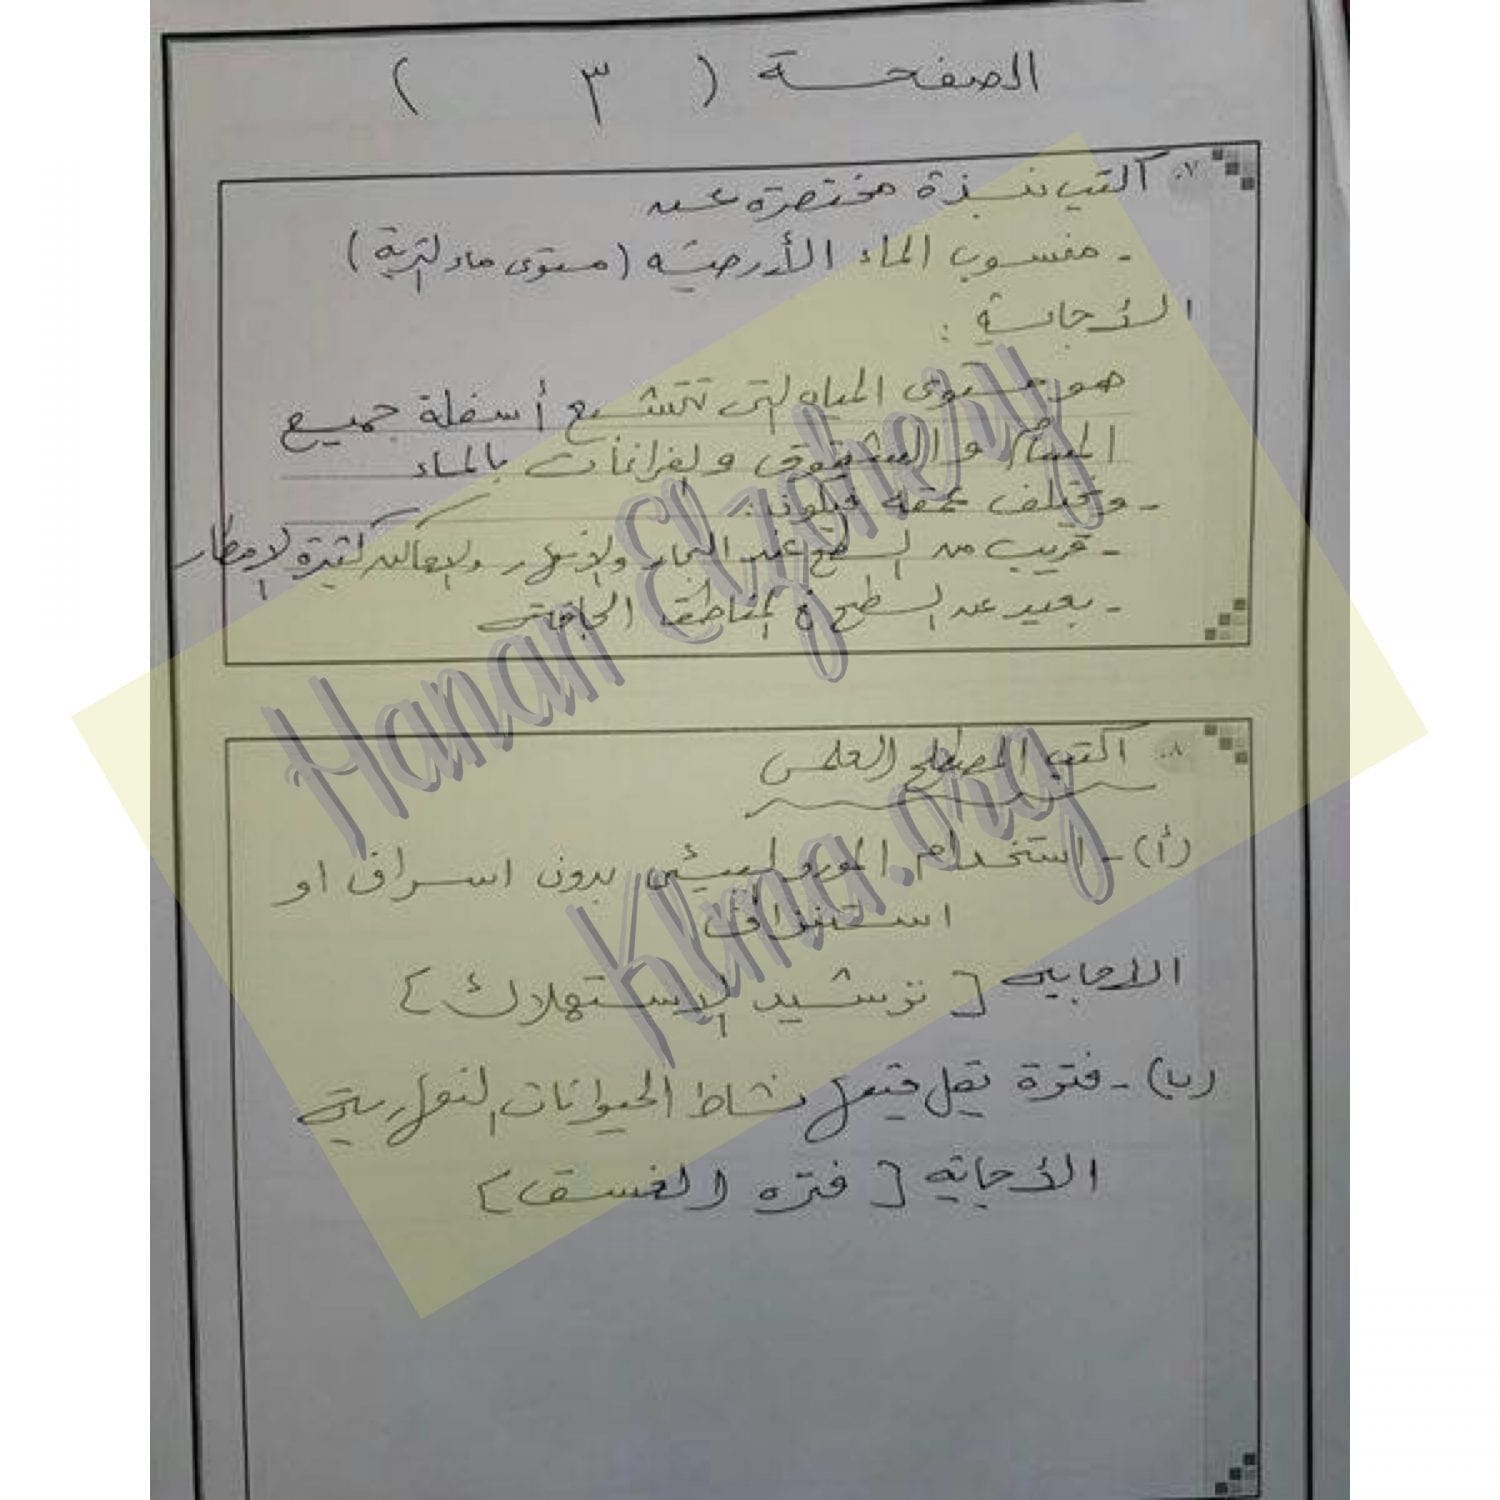 الصفحة ( ٣ )
٠٧ اكتب نبذة مختصرة عن
- منسوب الماء الأرضية (مستوى ماء التربة)
الأجابة :
هو مستوى المياه التى تتشبع أسفلة جميع
المسام و الشقوق والفراغات بالماء
- ويختلف عمقه فيكون:
- قريب من السطح عند البحار والانهار والاماكن كثيرة الامطار
- بعيد عن السطح فى المناطق الجافة
٠٨ اكتب المصطلح العلمى
(أ) - استخدام المورد البيئى بدون اسراف او
استنزاف
الاجابه [ ترشيد الاستهلاك }
(ب) - فترة يقل فيها نشاط الحيوانات النهارية
الأجابة [ فتره الغسق }
Hanan Elzohery
Klma.org